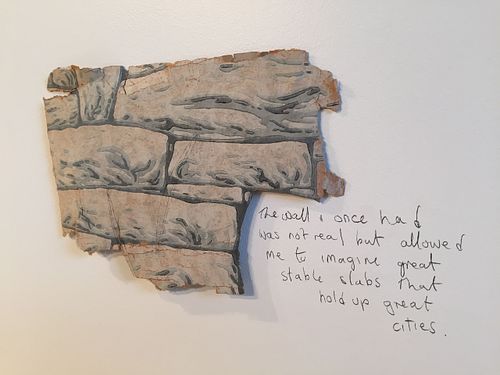 The wall i once had
was not real but allowed
me to imagine great
stable slabs that
hold up great
cities.